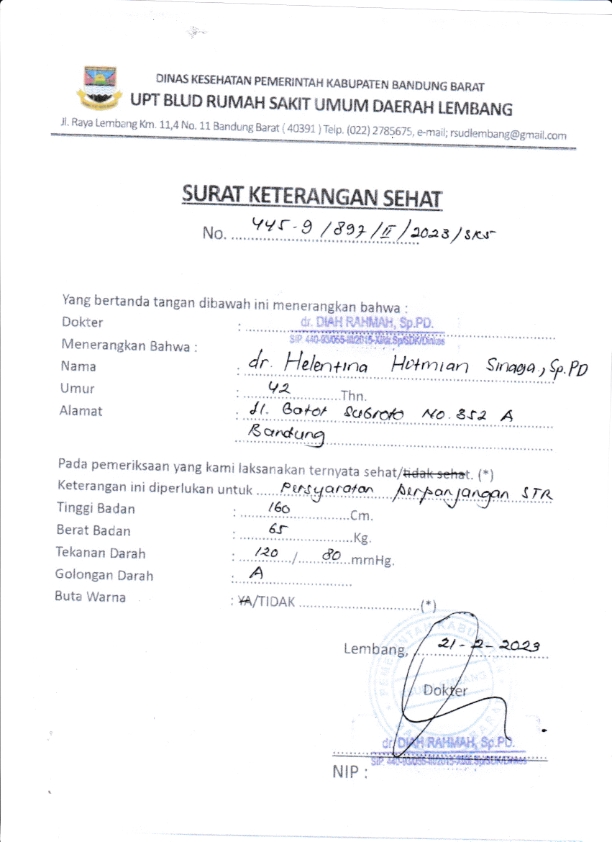 DINAS KESEHATAN PEMERINTAH KABUPATEN BANDUNG BARAT
UPT BLUD RUMAH SAKIT UMUM DAERAH LEMBANG
Jl. Raya Lembang Km. 11,4 No. 11 Bandung Barat ( 40391 ) Telp. (022) 2785675, e-mail; rsudlembang@gmail.com
SURAT KETERANGAN SEHAT
No. 445-9/897/II/2023/SKS
Yang bertanda tangan dibawah ini menerangkan bahwa :
Dokter : dr. DIAH RAHMAH, Sp.PD.
Menerangkan Bahwa :
Nama : dr. Helentina Hutmian Sinaga, Sp.PD
Umur : 42 Thn.
Alamat : Jl. Gatot Subroto No. 352 A
Bandung
Pada pemeriksaan yang kami laksanakan ternyata sehat/tidak sehat. (*)
Keterangan ini diperlukan untuk Persyaratan perpanjangan STR
Tinggi Badan : 160 Cm.
Berat Badan : 65 Kg.
Tekanan Darah : 120 / 80 mmHg.
Golongan Darah : A
Buta Warna : YA/TIDAK (*)
Lembang, 21-2-2023
Dokter
dr. DIAH RAHMAH, Sp.PD.
NIP :